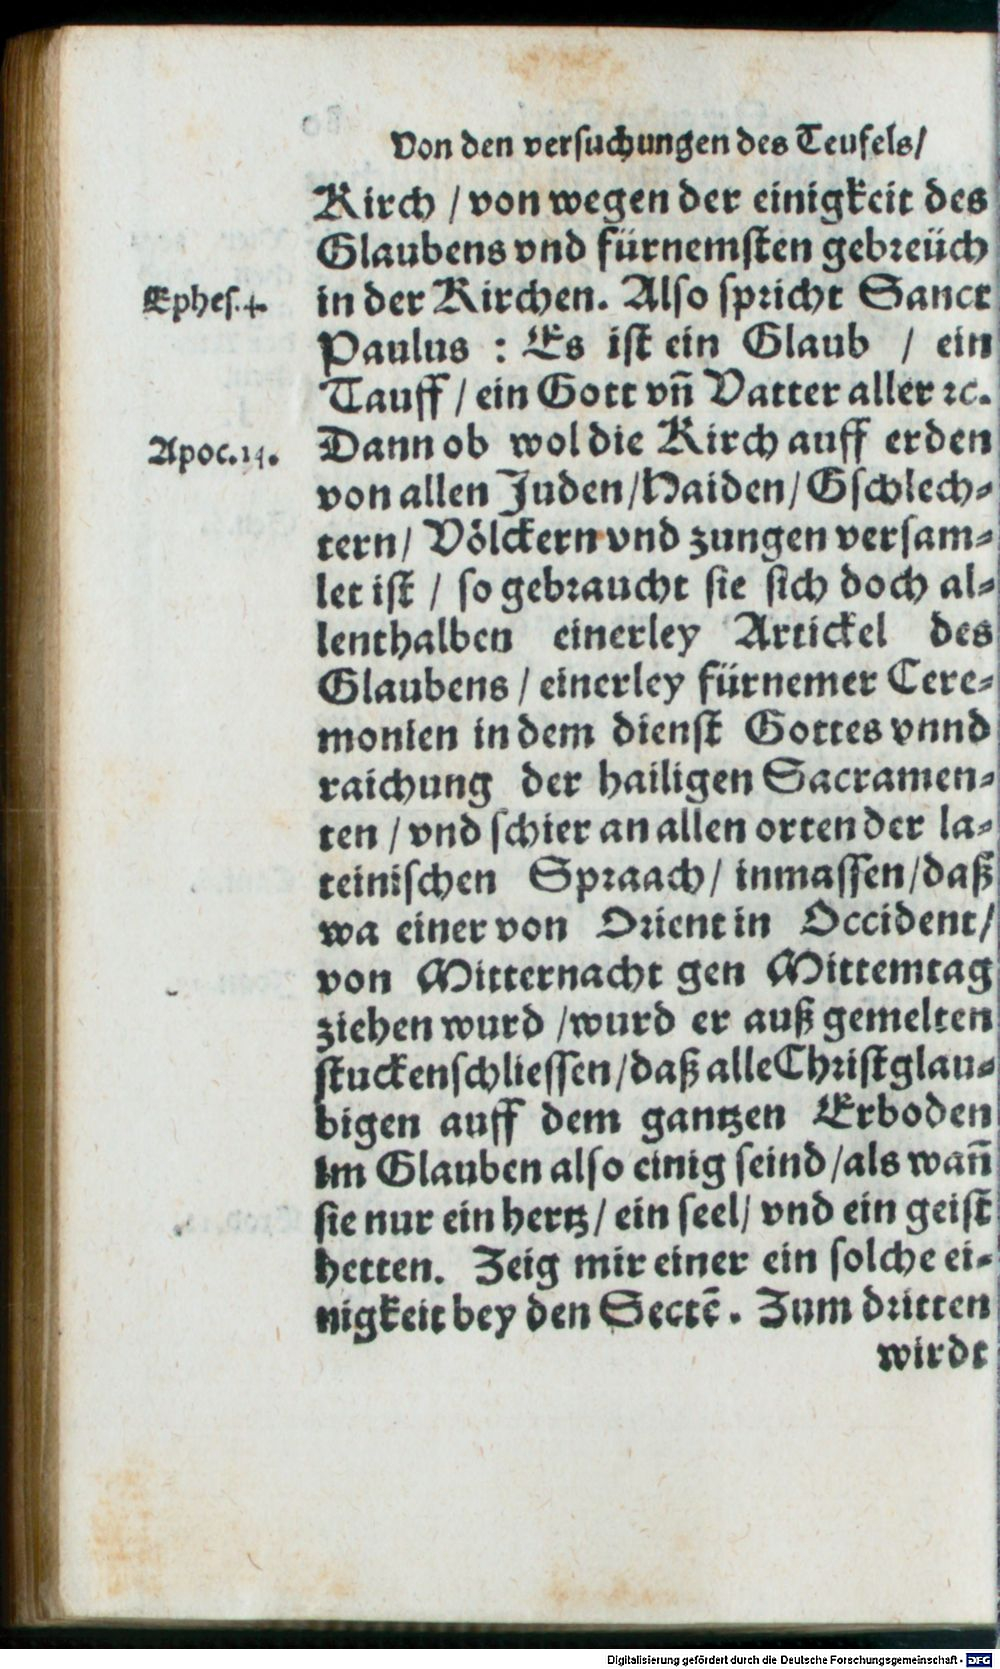 Von den versuchungen des Teufels/
Kirch / von wegen der einigkeit des
Glaubens vnd fürnemsten gebreüch
Ephes.4. in der Kirchen. Also spricht Sanct
Paulus : Es ist ein Glaub / ein
Tauff / ein Gott vñ Vatter aller ꝛc.
Apoc.14. Dann ob wol die Kirch auff erden
von allen Juden/Haiden/Gschlech-
tern/ Völckern vnd zungen versam-
let ist / so gebraucht sie sich doch al-
lenthalben einerley Artickel des
Glaubens / einerley fürnemer Cere-
monien in dem dienst Gottes vnnd
raichung der hailigen Sacramen-
ten / vnd schier an allen orten der la-
teinischen Spraach/ inmassen/daß
wa einer von Orient in Occident/
von Mitternacht gen Mittemtag
ziehen wurd /wurd er auß gemelten
stucken schliessen/daß alle Christglau-
bigen auff dem gantzen Erboden
im Glauben also einig seind/als wañ
sie nur ein hertz/ ein seel/ vnd ein geist
hetten. Zeig mir einer ein solche ei-
nigkeit bey den Sectẽ. Zum dritten
wirdt
Digitalisierung gefördert durch die Deutsche Forschungsgemeinschaft - DFG